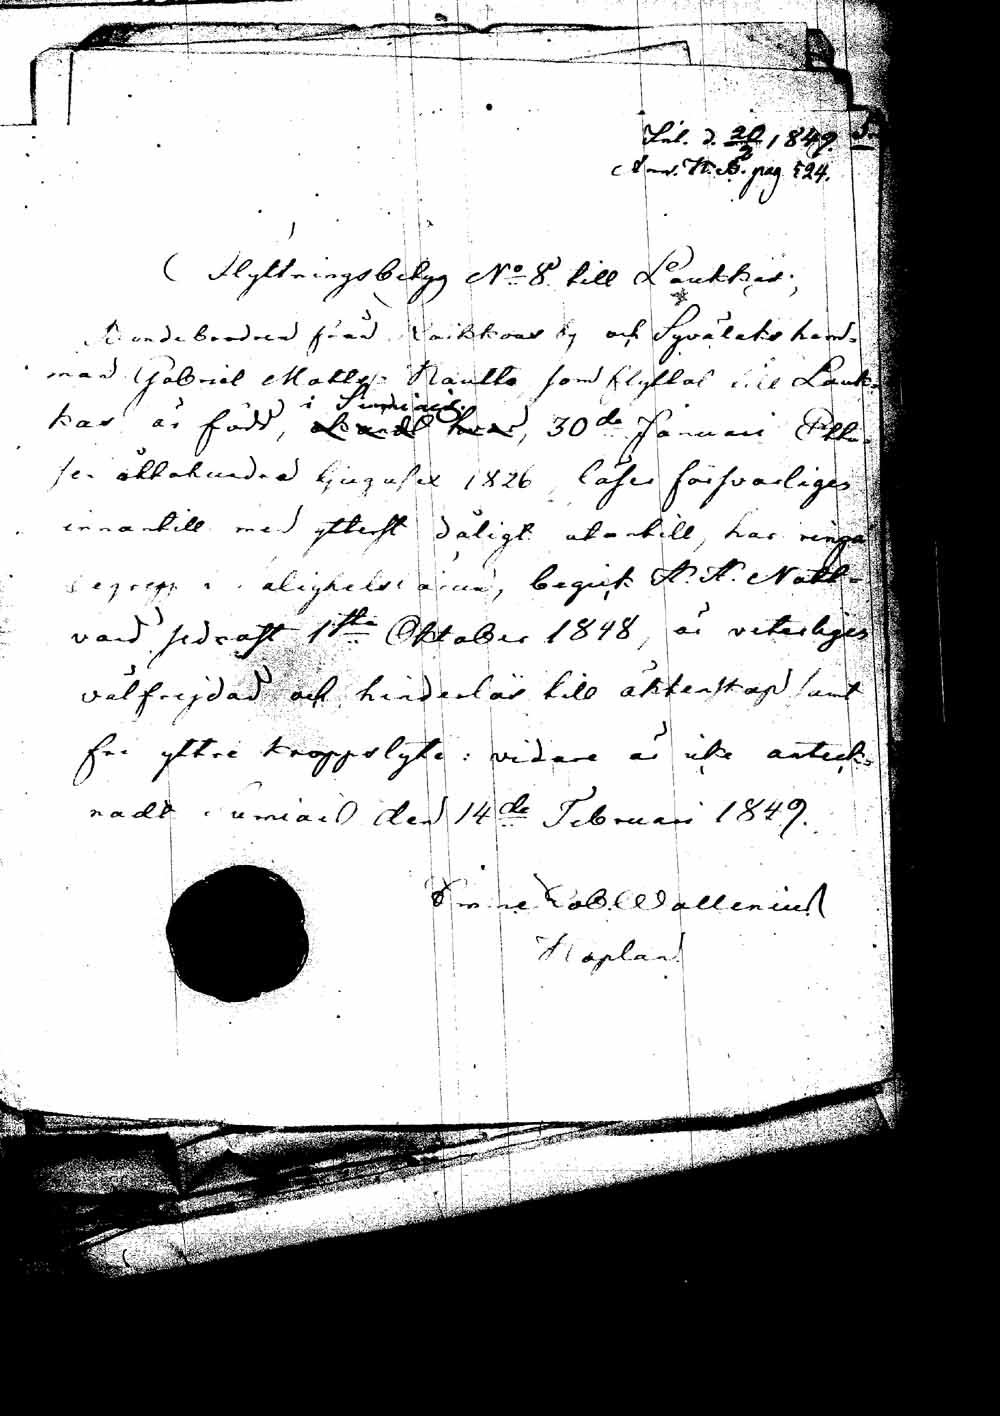 Inl. d. 20/2 1849.
Anm. K. B. pag 524.
Flyttningsbetyg No 8 till Laukkas;
Bondebrodren från by och SyväLaks hem-
man Gabriel Matts: Rautto som flyttat till Lauk-
kas är född, i Sumiais, 30de Januari Ettu-
sen åttahundra tjugusex 1826, läser försvarliges
innantill med ytterst dåligt utantill, har ringa
begrepp i salighetsläran, begick H. H. Natt-
vard sednast 1sta Oktober 1848, är veterliges
välfrejdad och hinderlös till äktenskap samt
fri yttre kroppslyte: vidare är icke anteck-
nadt Sumiais den 14de Februari 1849.
Wallenius
Kaplan